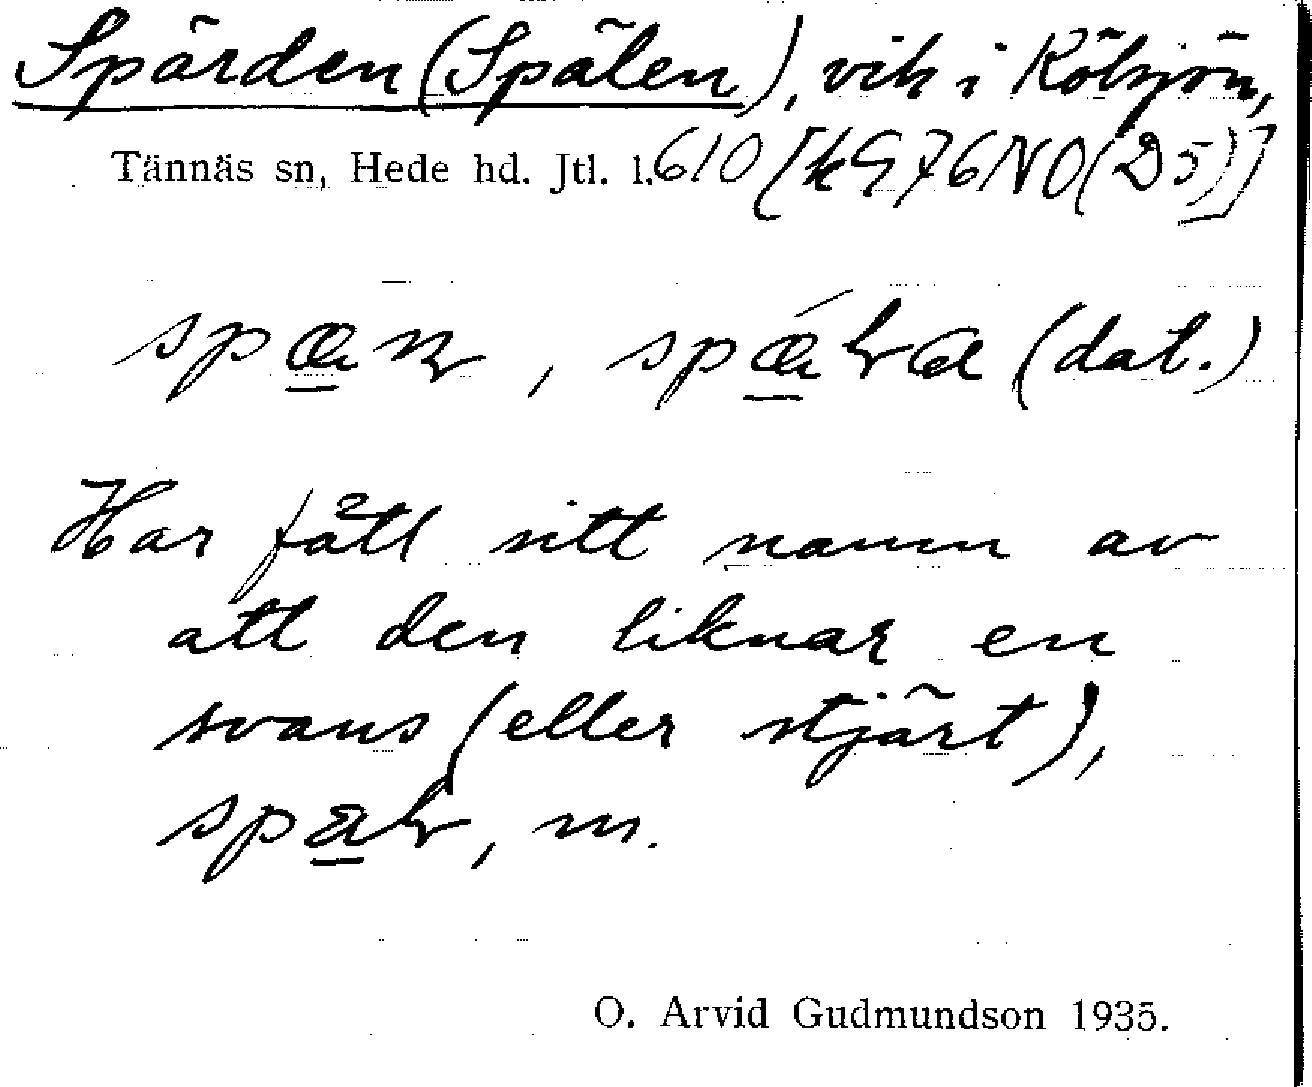 Spärden (Spälen), vik i Kölsjön,
Tännäs sn, Hede hd. Jtl. l. 610 [kG76NO(D5)]
(dat.)
Har fått sitt namn av
att den liknar en
svans (eller stjärt),
m.
O. Arvid Gudmundson 1935.